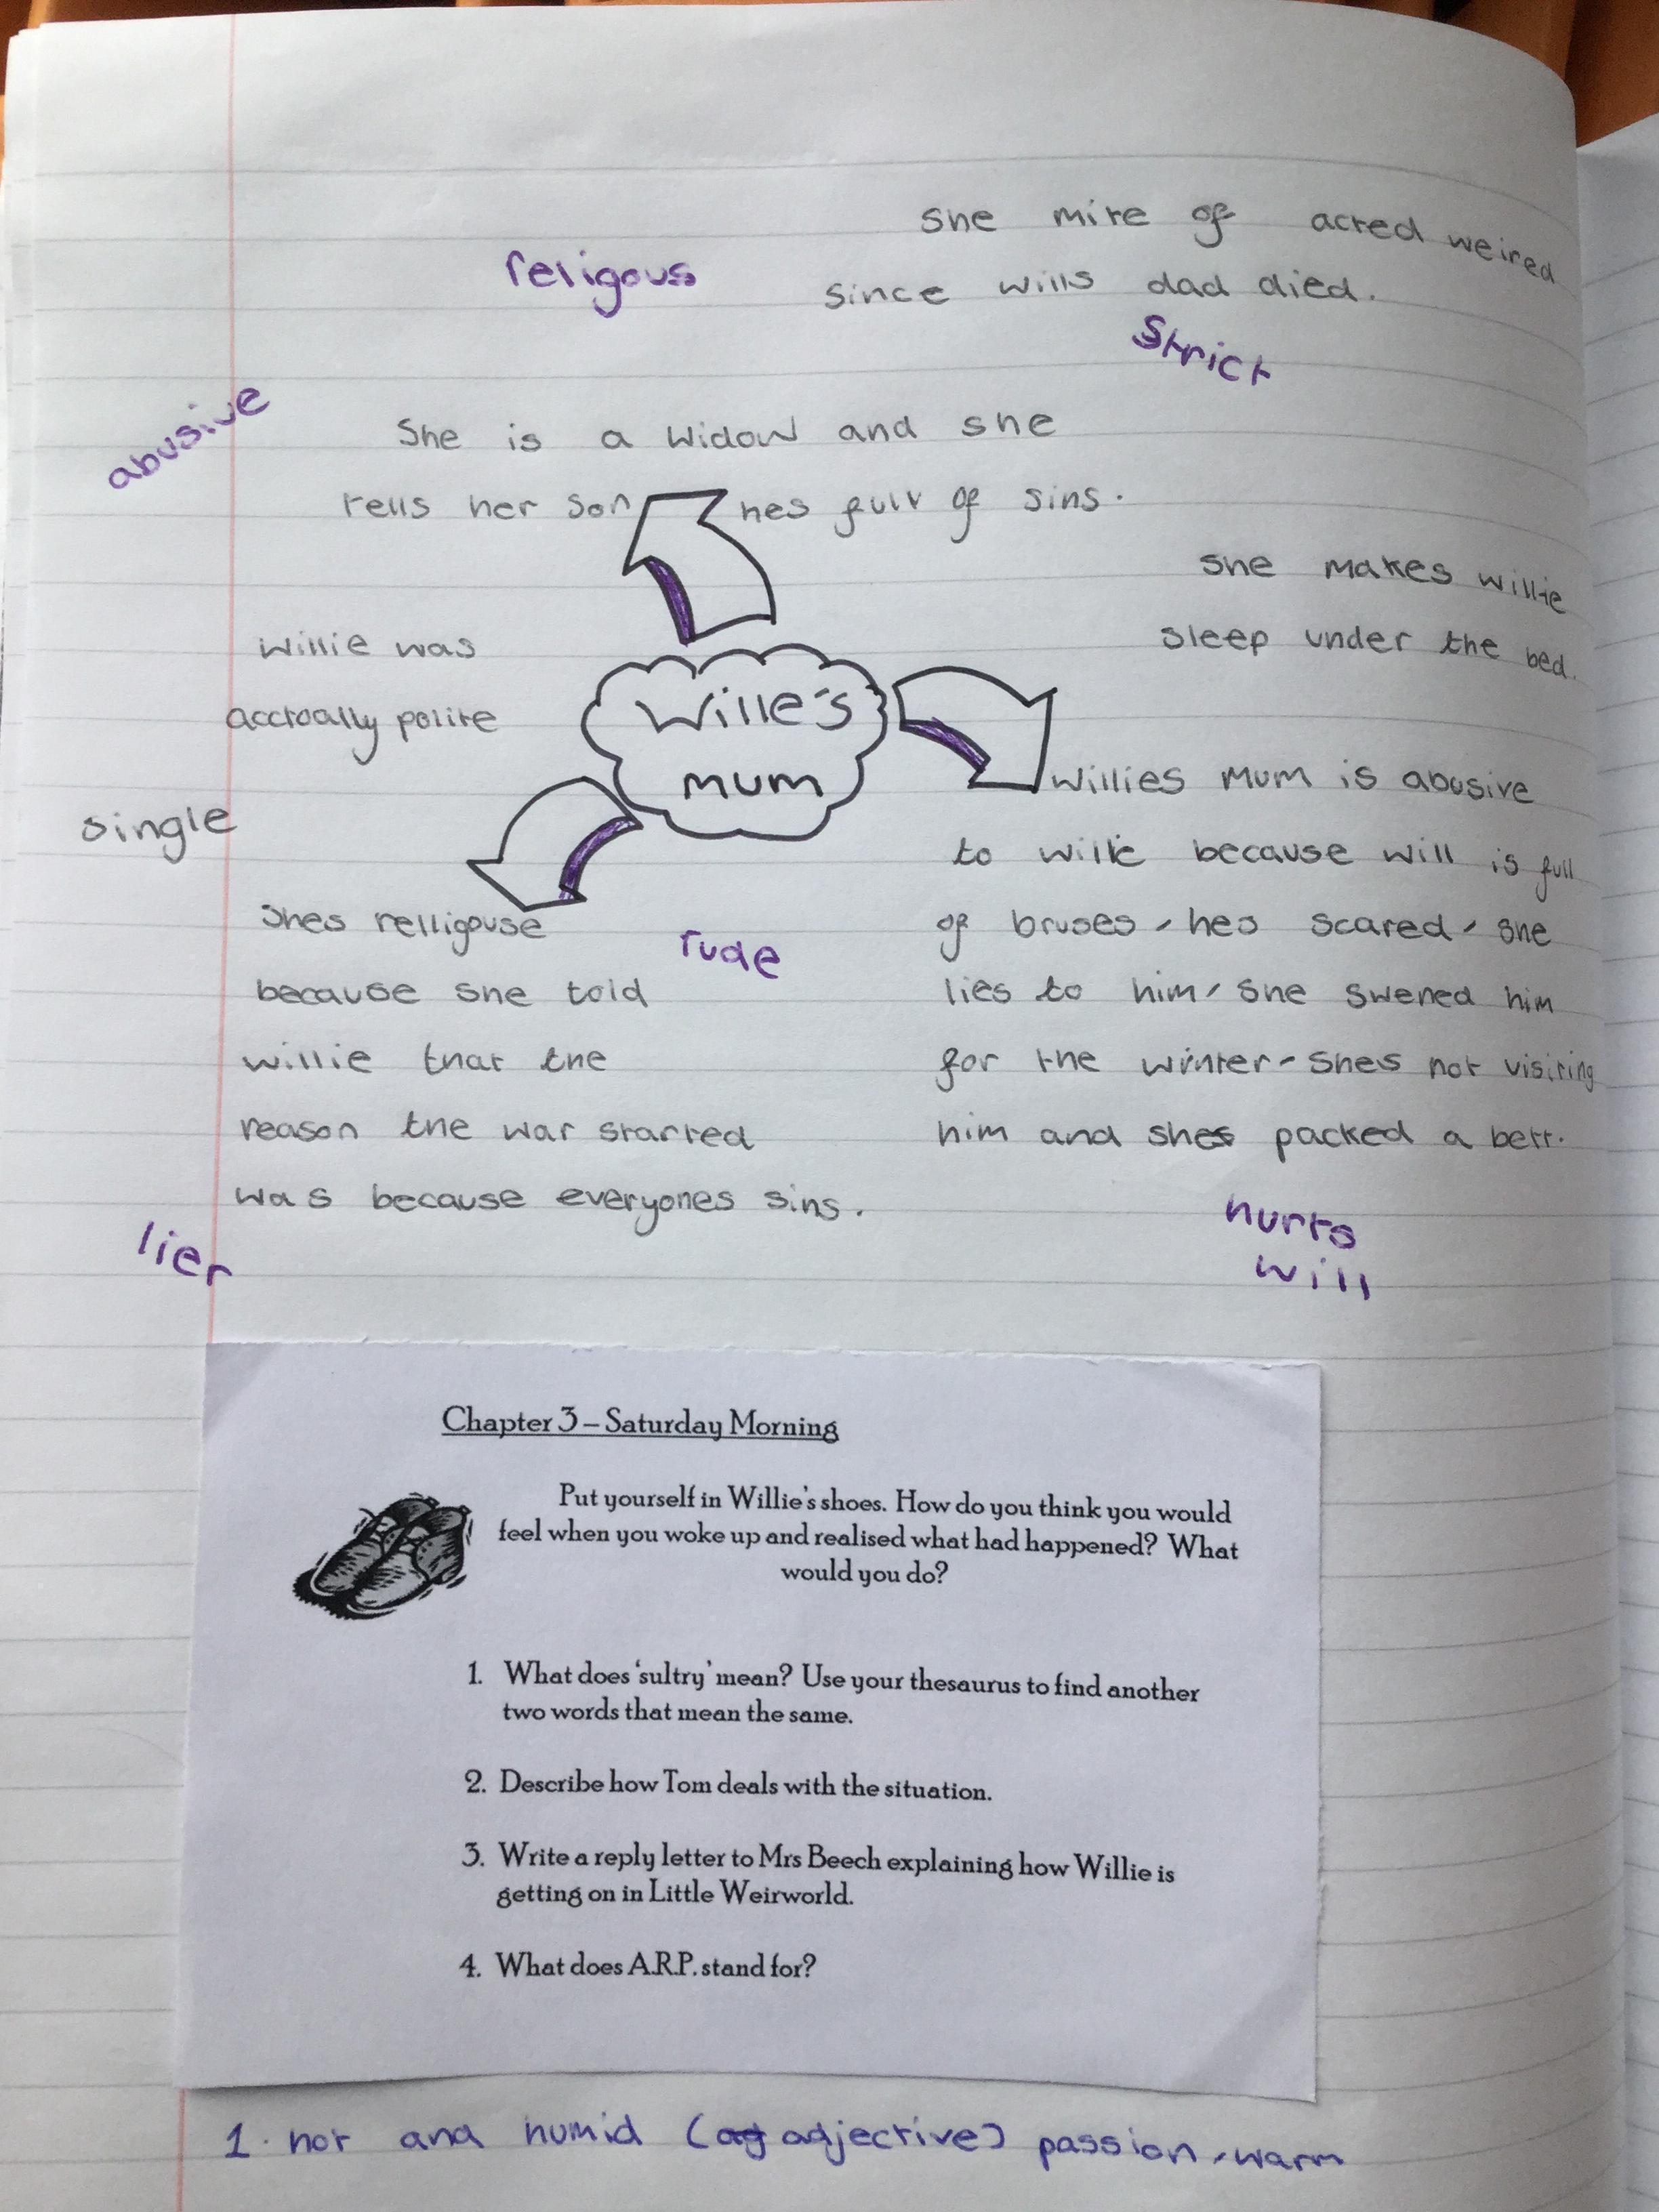 she mite of acted weired
religous
since wills dad died.
Strict
abusive
She is a widow and she
tells her son hes full of sins.
she makes willie
sleep under the bed.
willie was
acctoally polite
Wille's
mum
single
Willies mum is abusive
to willie because will is full
of bruses, hes scared, she
lies to him, she swened him
for the winter, shes not visiting
him and shes packed a belt.
Shes relligouse
because she told
willie that the
reason the war started
was because everyones sins.
rude
lier
hurts
will
Chapter 3 – Saturday Morning
Put yourself in Willie's shoes. How do you think you would
feel when you woke up and realised what had happened? What
would you do?
1. What does 'sultry' mean? Use your thesaurus to find another
two words that mean the same.
2. Describe how Tom deals with the situation.
3. Write a reply letter to Mrs Beech explaining how Willie is
getting on in Little Weirworld.
4. What does A.R.P. stand for?
1. hot and humid (adjective) passion, warm